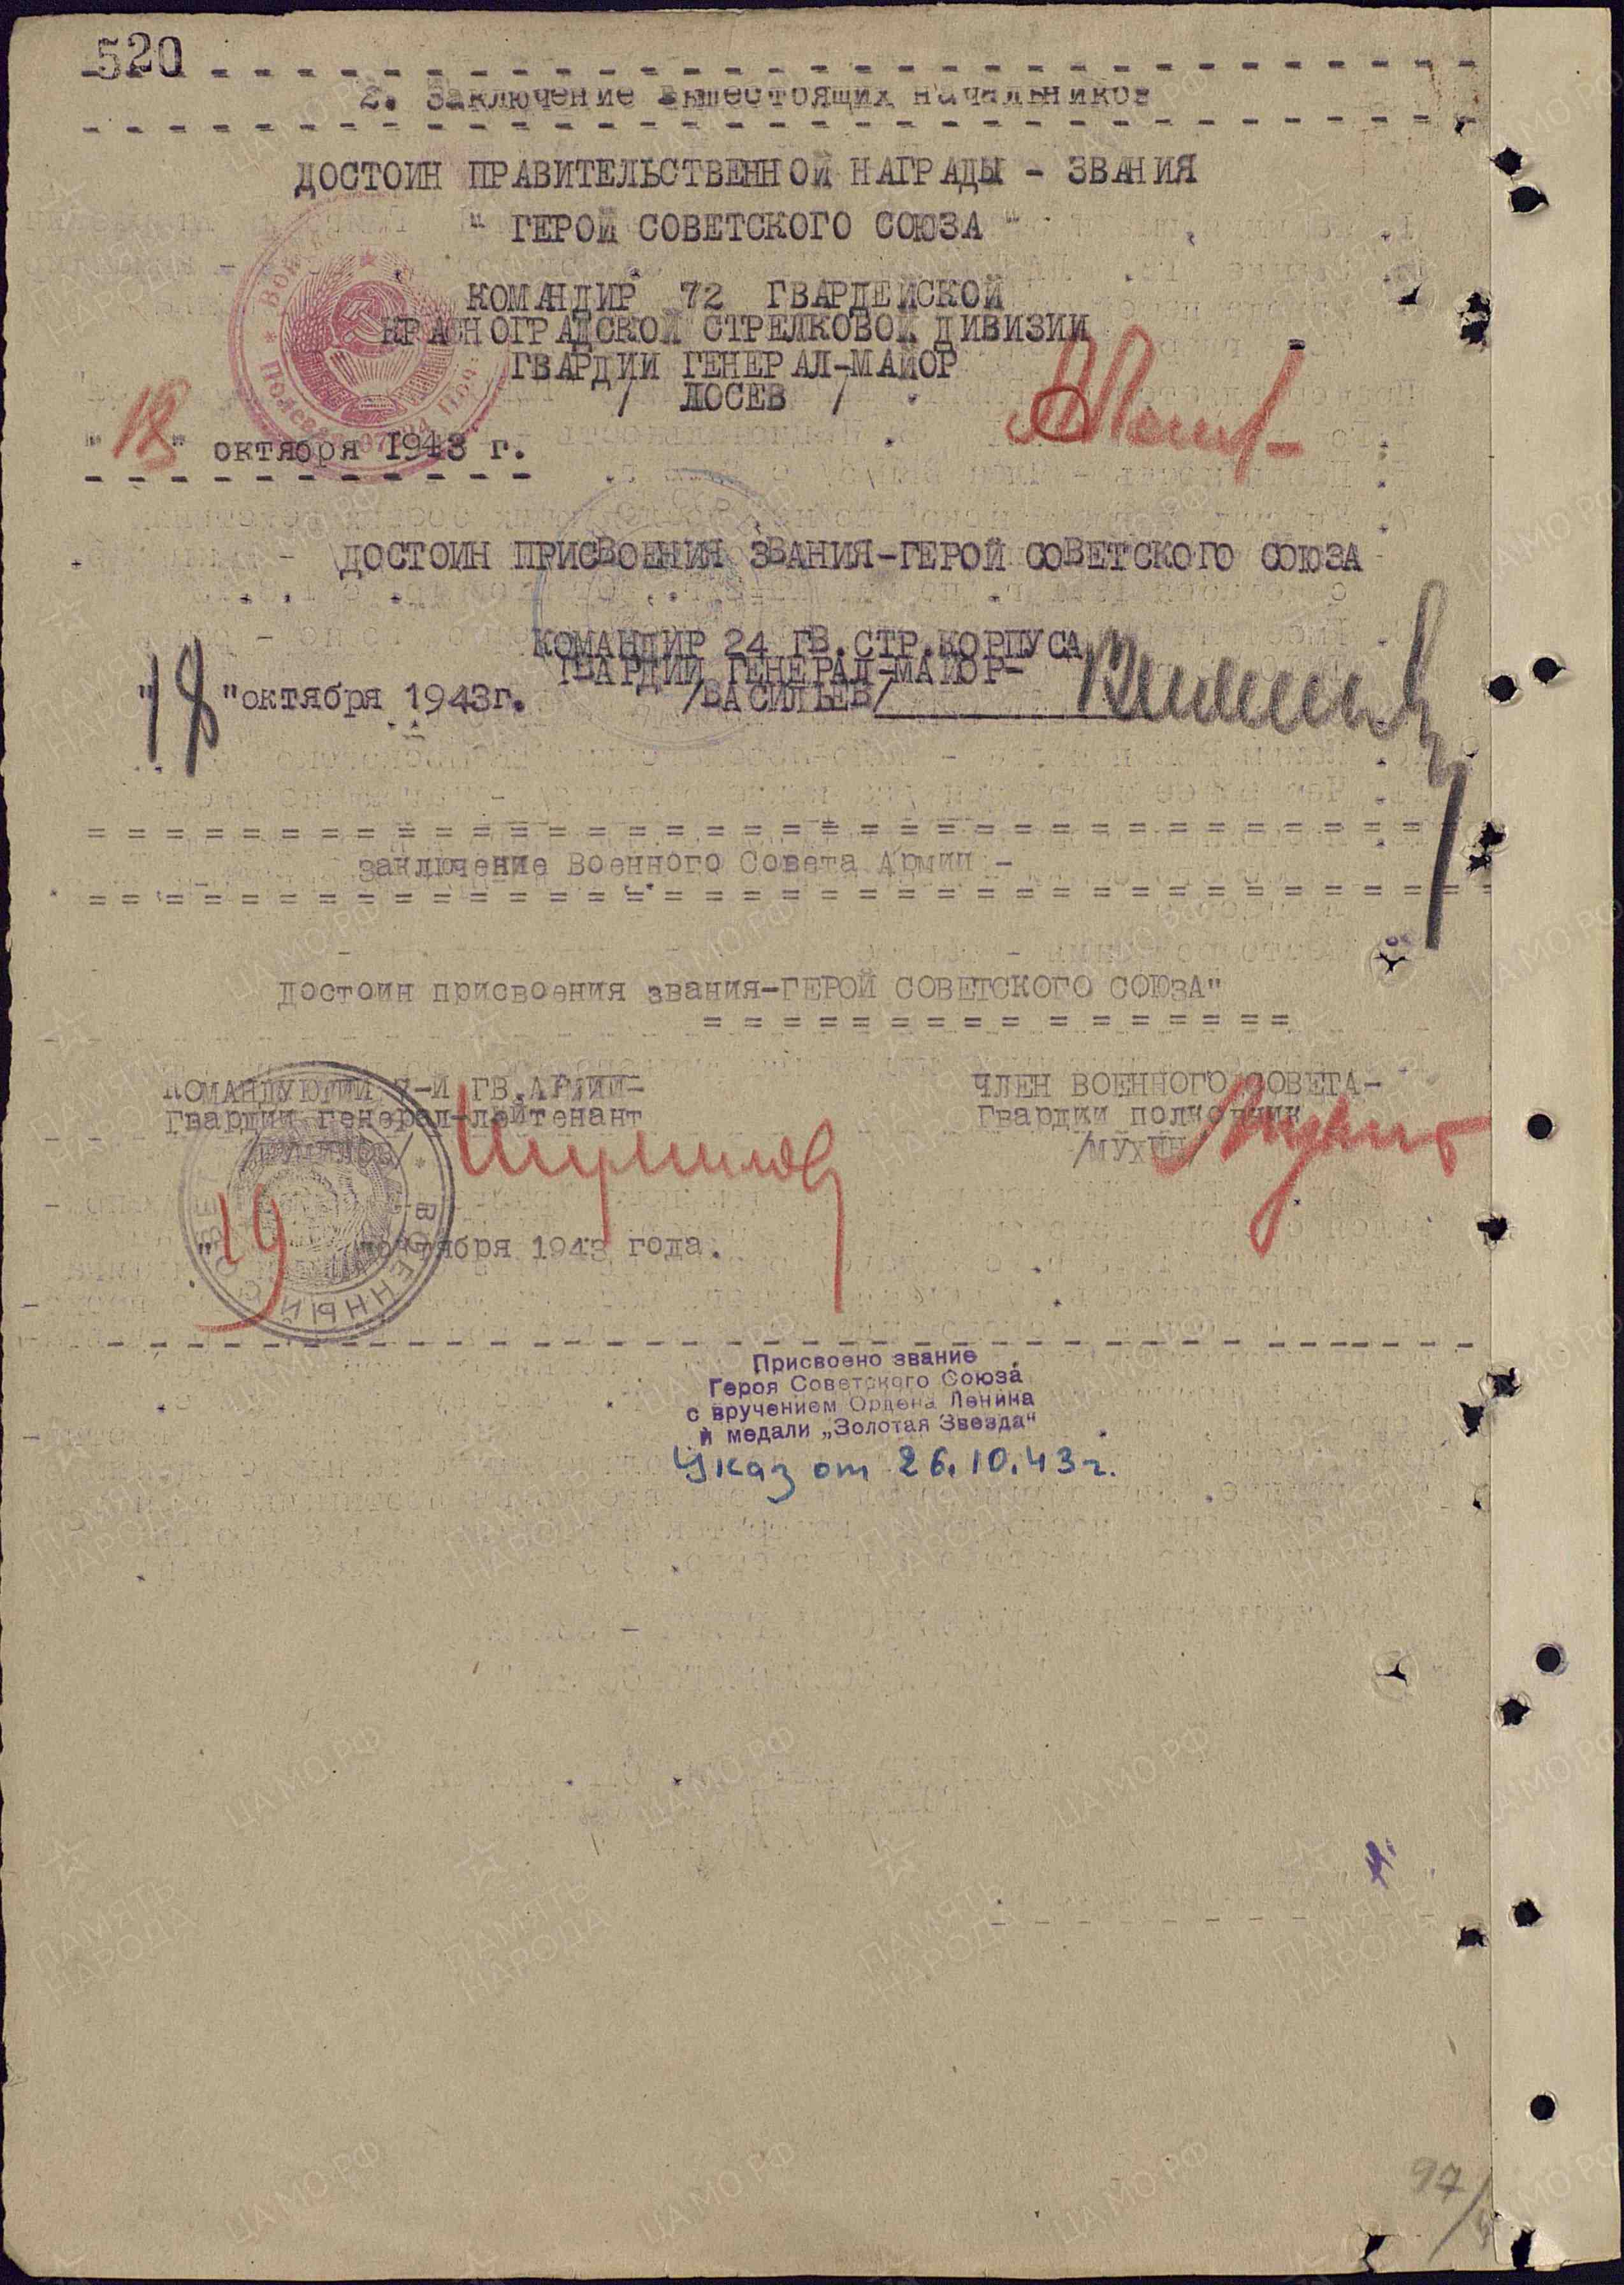 520
2. Заключение вышестоящих начальников
ДОСТОИН ПРАВИТЕЛЬСТВЕННОЙ НАГРАДЫ - ЗВАНИЯ
" ГЕРОЙ СОВЕТСКОГО СОЮЗА "
КОМАНДИР 72 ГВАРДЕЙСКОЙ
КРАСНОГРАДСКОЙ СТРЕЛКОВОЙ ДИВИЗИИ
ГВАРДИИ ГЕНЕРАЛ-МАЙОР
/ ЛОСЕВ /
"18" октября 1943 г.
ДОСТОИН ПРИСВОЕНИЯ ЗВАНИЯ-ГЕРОЙ СОВЕТСКОГО СОЮЗА
КОМАНДИР 24 ГВ.СТР.КОРПУСА
ГВАРДИИ ГЕНЕРАЛ-МАЙОР-
/ВАСИЛЬЕВ/
"18"октября 1943г.
Заключение Военного Совета Армии -
Достоин присвоения звания-ГЕРОЙ СОВЕТСКОГО СОЮЗА"
КОМАНДУЮЩИЙ 7-Й ГВ.АРМИИ-
Гвардии генерал-лейтенант
/ШУМИЛОВ/ Шумилов
ЧЛЕН ВОЕННОГО СОВЕТА-
Гвардии полковник
/МУХИН/ Мухин
"19 "октября 1943 года.
ВОЕННЫЙ СОВЕТ
Присвоено звание
Героя Советского Союза
с вручением Ордена Ленина
и медали „Золотая Звезда"
Указ от 26.10.43г.
97
ПАМЯТЬ НАРОДА
ЦАМО.РФ